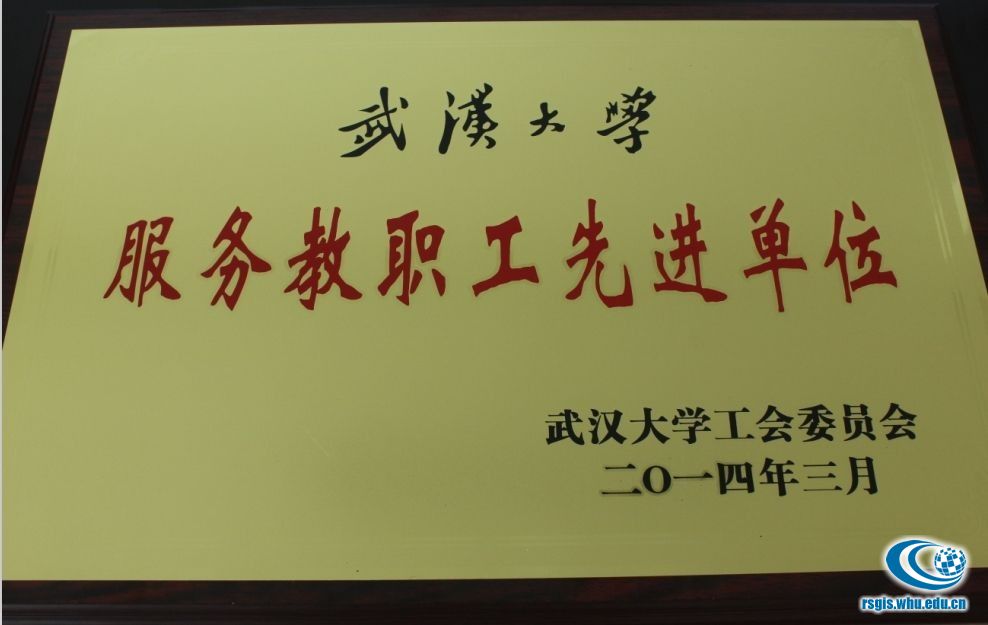 武漢大學
服务教职工先进单位
武汉大学工会委员会
二〇一四年三月
rsgis.whu.edu.cn